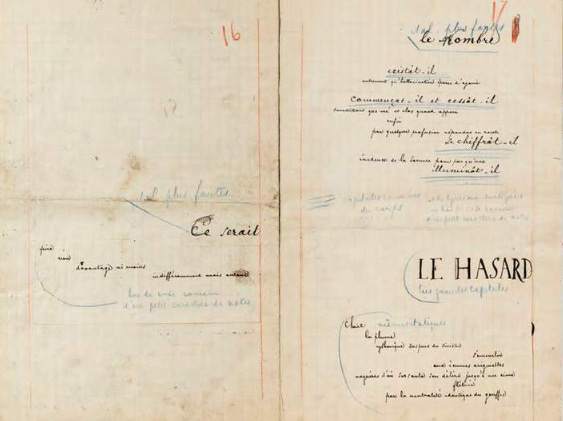 16
ital plus fortes
Ce serait
pire
non
davantage ni moins
indifféremment mais autant
bas de casse romain
d'un petit caractère de notes
17
ital plus fortes
le nombre
existât-il
autrement qu'hallucination éparse d'agonie
commençât-il et cessât-il
sourdant que nié et clos quand apparu
enfin
par quelque profusion répandue en rareté
se chiffrât-il
évidence de la somme pour peu qu'une
illuminât-il
LE HASARD
très grandes capitales
Choit
la plume
rythmique suspens du sinistre
s'ensevelir
aux écumes originelles
naguères d'où sursauta son délire jusqu'à une cime
flétrie
par la neutralité identique du gouffre